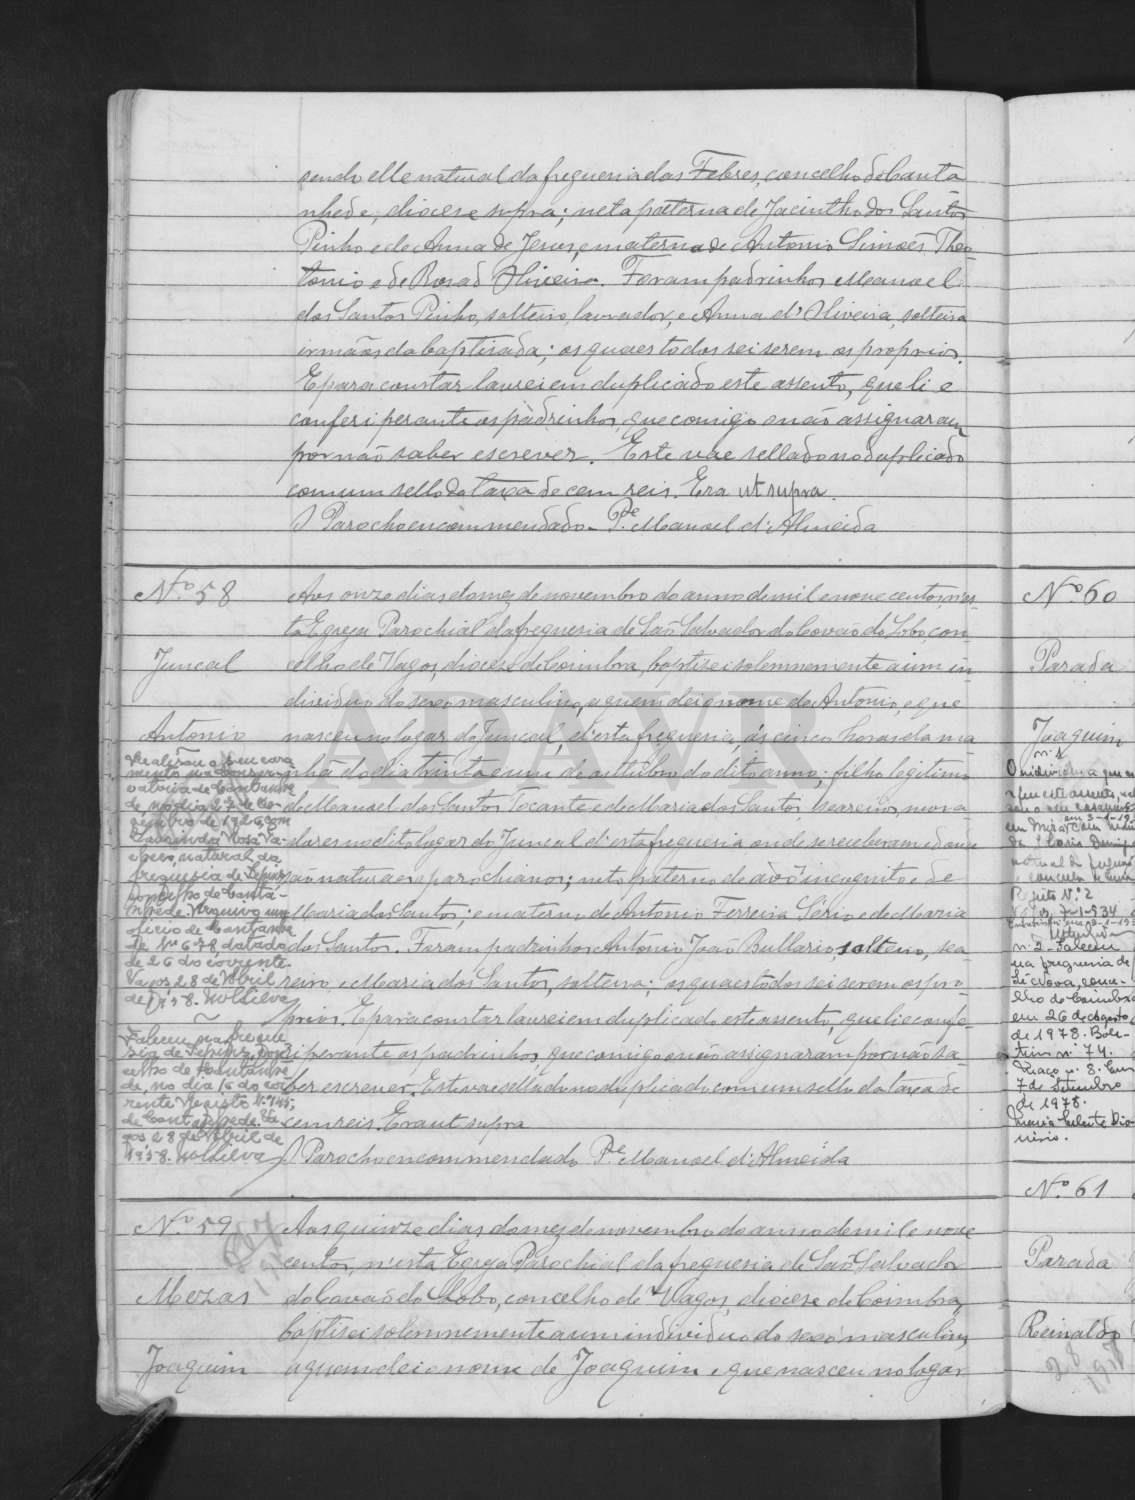 sendo elle natural da freguesia das Febres, concelho de Canta
nhede, diocese supra; neta paterna de Jacintho dos Santos
Pinho e de Anna de Jesus, e materna de Antonio Simões Theo
tonio e de Rosa d'Oliveira. Foram padrinhos Manoel
dos Santos Pinho, solteiro, lavrador, e Anna d'Oliveira, solteira
irmãos da baptisada; os quaes todos sei serem os proprios.
E para constar lavrei em duplicado este assento, que li e
conferi perante os padrinhos, que comigo não assignaram
por não saber escrever. Este vae sellado no duplicado
com um sello da taxa de cem reis. Era ut supra.
O Parocho encommendado P.e Manoel d'Almeida
N.º 58
Juncal
Antonio
Aos onze dias do mez de novembro do anno de mil e nove centos, n'es-
ta Egreja Parochial da freguesia de São Salvador do Covão do Lobo, con
celho de Vagos, diocese de Coimbra, baptisei solemnemente a um in
dividuo do sexo masculino, a quem dei o nome de Antonio, e que
nasceu no logar do Juncal, d'esta freguesia, ás cinco horas da ma
nhã do dia trinta e um de outubro do dito anno; filho legitimo
de Manoel dos Santos Tocante e de Maria dos Santos, seareiros, mora
dores no dito logar do Juncal d'esta freguesia onde se receberam e d'onde
são naturaes e parochianos; neto paterno de avô incognito e de
Maria dos Santos; e materno de Antonio Ferreira Serio e de Maria
dos Santos. Foram padrinhos Antonio João Bullario, solteiro, sea
reiro, e Maria dos Santos, solteira; os quaes todos sei serem os pro
prios. E para constar lavrei em duplicado este assento, que li e confe
ri perante os padrinhos, que comigo não assignaram por não sa
ber escrever. Este vae sellado no duplicado com um sello da taxa de
cem reis. Era ut supra
O Parocho encommendado P.e Manoel d'Almeida
Realizou o seu casa
mento na conser-
vatoria de Cantanhede
no dia 27 de
de 1926 com
Rosa
natural da
freguesia de Sepins
concelho de Canta-
nhede. Arquivo um
oficio de Cantanhede
de N.º 678 datado
de 26 do corrente.
Vagos 28 de Abril
de 1958.
Faleceu na fregue
sia de Sepins, con
celho de Cantanhe
de, no dia 16 do cor
rente Registo N.º 145,
de Cantanhede. Va
gos 28 de Abril de
1958.
N.º 59
Mezas
Joaquim
Aos quinze dias do mez de novembro do anno de mil e nove
centos, n'esta Egreja Parochial da freguesia de São Salvador
do Covão do Lobo, concelho de Vagos, diocese de Coimbra,
baptisei solemnemente a um individuo do sexo masculino,
a quem dei o nome de Joaquim e que nasceu no logar
N.º 60
Parada
Joaquim
n.º 1
n.º 2 - Faleceu
na freguesia de
Sé Nova, conce-
lho de Coimbra
em 26 de Agosto
de 1978. Bole-
tim n.º 74.
Maço n.º 8. Em
7 de Setembro
de 1978.
N.º 61
Parada
Reinaldo
ADAVR